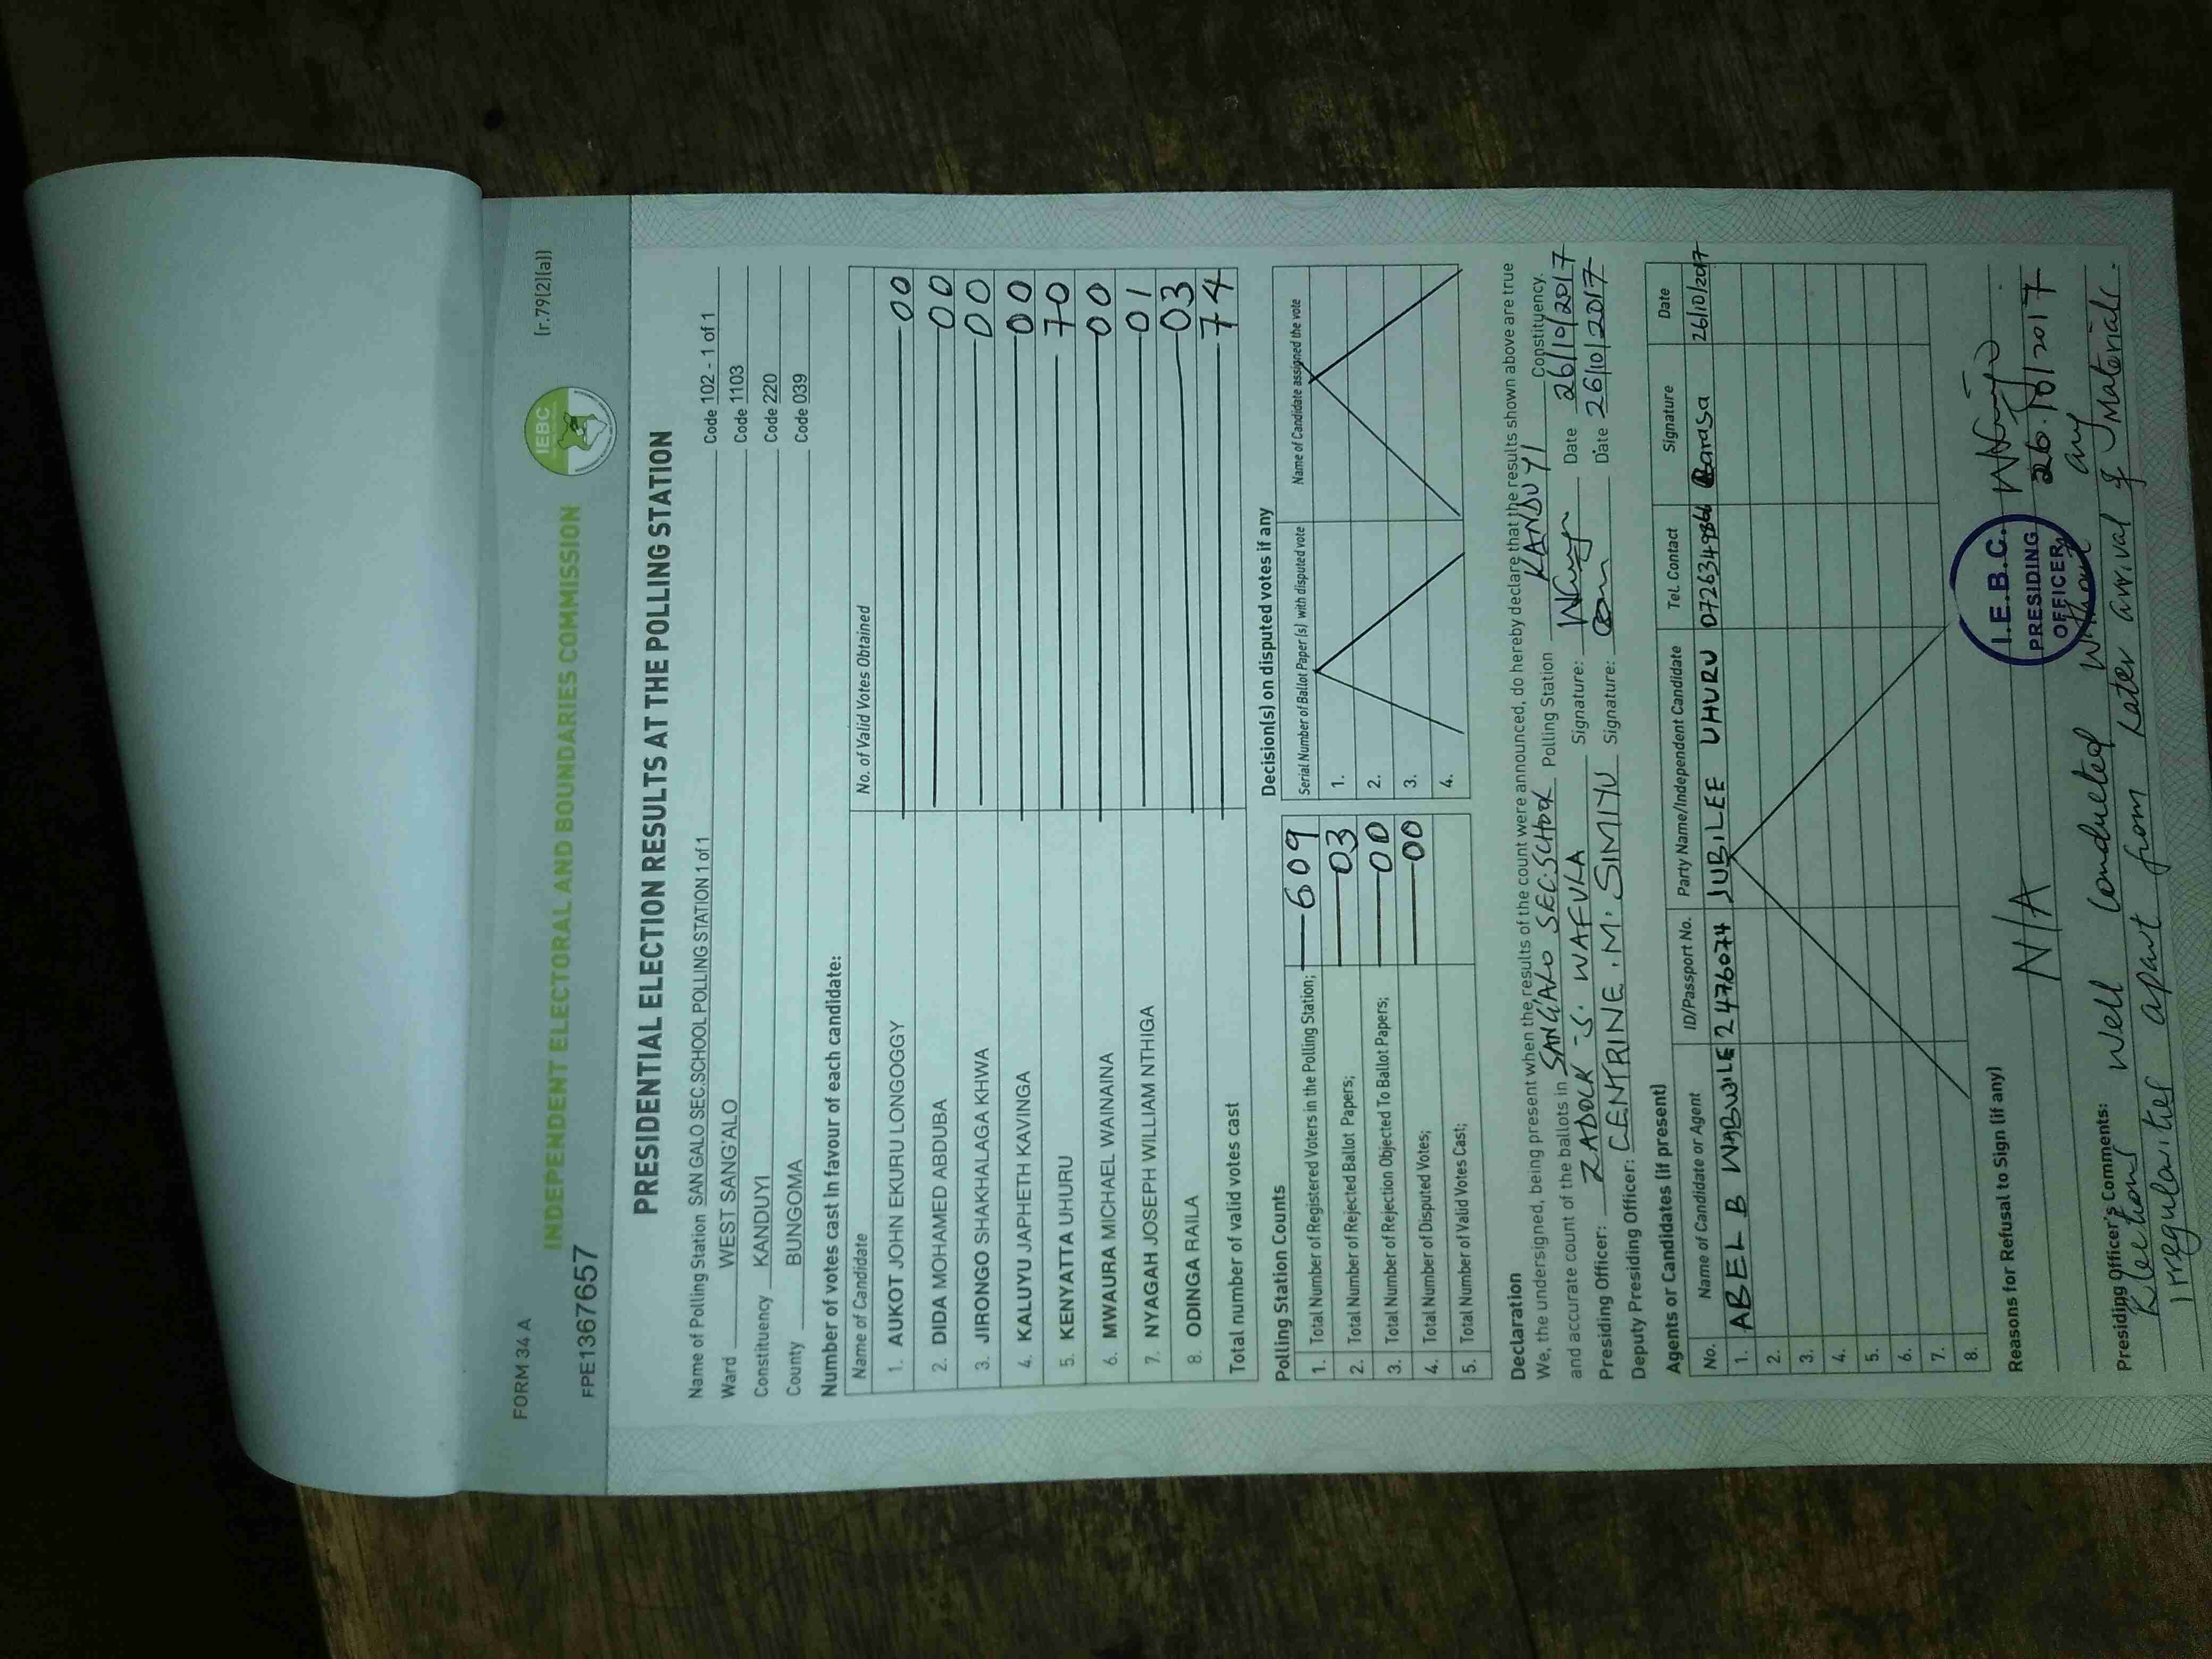 FORM 34 A
(r.79(2)(a))
IEBC
INDEPENDENT ELECTORAL AND BOUNDARIES COMMISSION
FPE1367657
PRESIDENTIAL ELECTION RESULTS AT THE POLLING STATION
Name of Polling Station SAN GALO SEC.SCHOOL POLLING STATION 1 of 1 Code 102 - 1 of 1
Ward WEST SANG'ALO Code 1103
Constituency KANDUYI Code 220
County BUNGOMA Code 039
Number of votes cast in favour of each candidate:
Name of Candidate No. of Valid Votes Obtained
1. AUKOT JOHN EKURU LONGOGGY 00
2. DIDA MOHAMED ABDUBA 00
3. JIRONGO SHAKHALAGA KHWA 00
4. KALUYU JAPHETH KAVINGA 00
5. KENYATTA UHURU 70
6. MWAURA MICHAEL WAINAINA 00
7. NYAGAH JOSEPH WILLIAM NTHIGA 01
8. ODINGA RAILA 03
Total number of valid votes cast 74
Polling Station Counts
1. Total Number of Registered Voters in the Polling Station; 609
2. Total Number of Rejected Ballot Papers; 03
3. Total Number of Rejection Objected To Ballot Papers; 00
4. Total Number of Disputed Votes; 00
5. Total Number of Valid Votes Cast;
Decision(s) on disputed votes if any
Serial Number of Ballot Paper(s) with disputed vote Name of Candidate assigned the vote
1.
2.
3.
4.
Declaration
We, the undersigned, being present when the results of the count were announced, do hereby declare that the results shown above are true
and accurate count of the ballots in SANG'ALO SEC. SCHOOL Polling Station KANDUYI Constituency.
Presiding Officer: ZADOCK S. WAFULA Signature: Date 26/10/2017
Deputy Presiding Officer: CENTRINE .M. SIMIYU Signature: Date 26/10/2017
Agents or Candidates (if present)
No. Name of Candidate or Agent ID/Passport No. Party Name/Independent Candidate Tel. Contact Signature Date
1. ABEL B WABWILE 2476074 JUBILEE UHURU Barasa 26/10/2017
2.
3.
4.
5.
6.
7.
8.
Reasons for Refusal to Sign (if any)
N/A
I.E.B.C.
PRESIDING
OFFICER
26.10/2017
Presiding Officer's Comments:
Elections well conducted without any
irregularities apart from later arrival of materials.